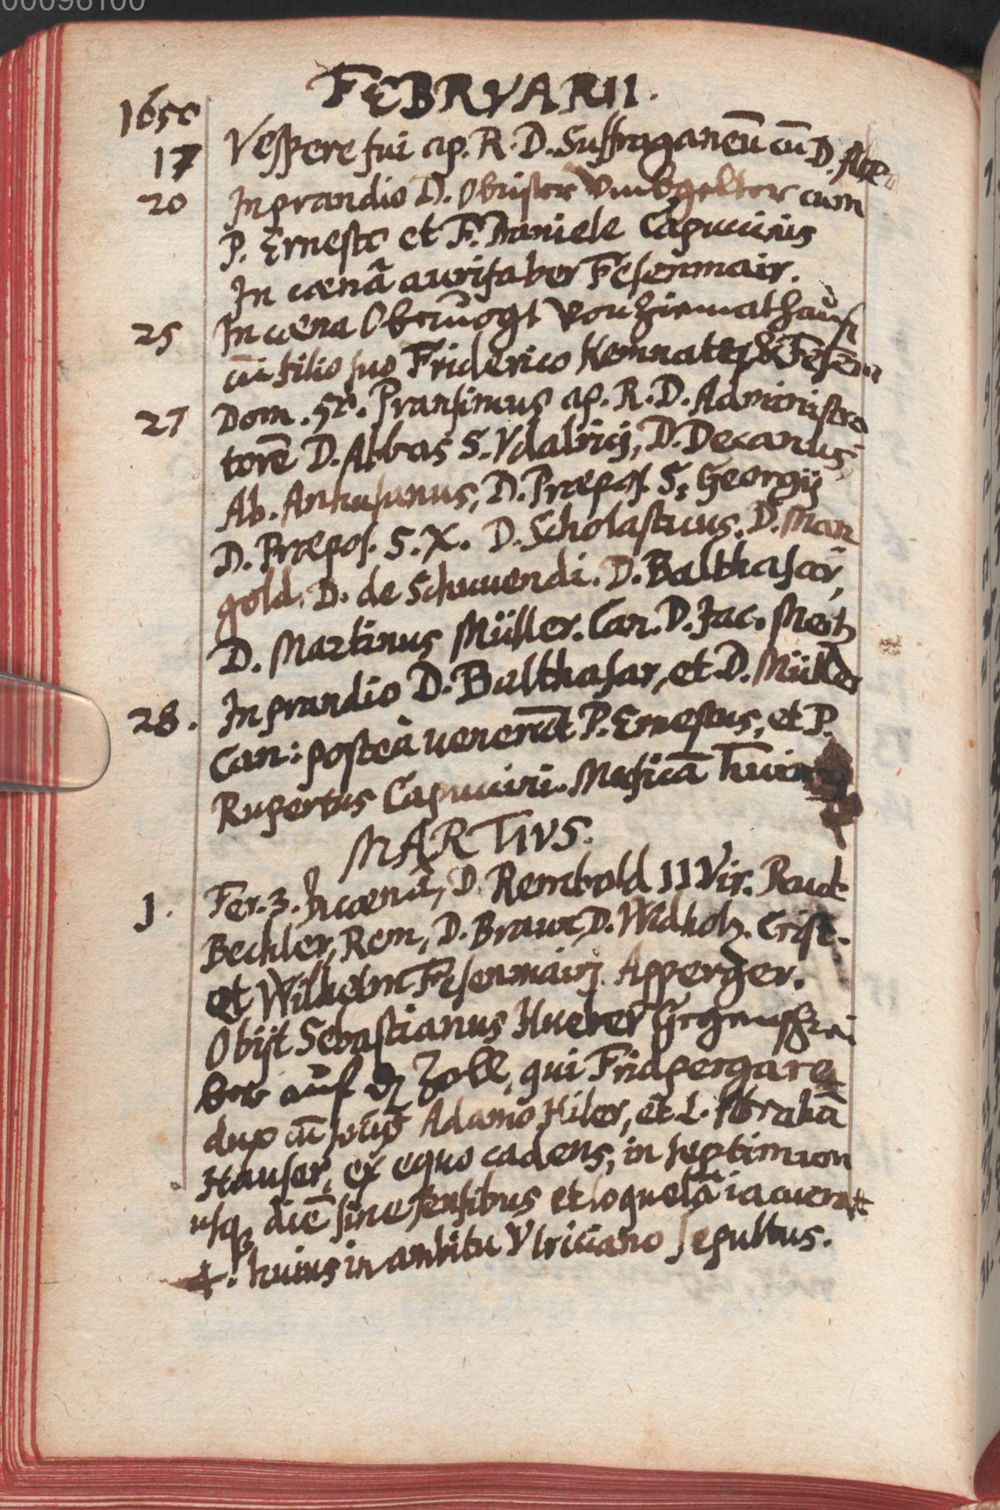 00096100
FEBRVARII.
1650
17 Vespere fui ap. R. D. Suffraganeũ cũ D.
20 In prandio D. Obrister Vmbgelter cum
P. Ernesto et F. Daniele Capucinis
In cœnâ aurifaber Fesenmair.
25 In cœna Obervogt von Ziemathausẽ
cũ filio suo Friderico Kemnater & Fesenm
27 Dom. 5ta. Pransimus ap. R. D. Administra
torẽ D. Abbas S. Vdalricj, D. Decanus,
Ab. Anhusanus, D. Præpos. S. Georgij
D. Præpos. S. X. D. Scholasticus. D. Man
gold. D. de Schwendi. D. Balthasar,
D. Martinus Müller. Can. D. Jac. Metz
28. In prandio D. Balthasar, et D. Müller
Can: posteà venerũt P. Ernestus, et P.
Rupertus Capucini. Musicã
MARTIVS.
1. Fer. 3. In cœnâ, D. Rembold II Vir. Raut
Bechler, Rem, D. Braun D. Widholz. Crist.
et Wilhelm Fesenmairj Apperger.
Obijt Sebastianus Hueber Gegenschrei
ber auf dẽ Zoll, qui Fridpergâ re
dux cũ socijs Adamo Hiler, et L. Abrahã
Hauser, ex equo cadens, in septimum
usq; diẽ sine sensibus et loquelâ iacuerat
4. huius in ambitu Vlriciano sepultus.